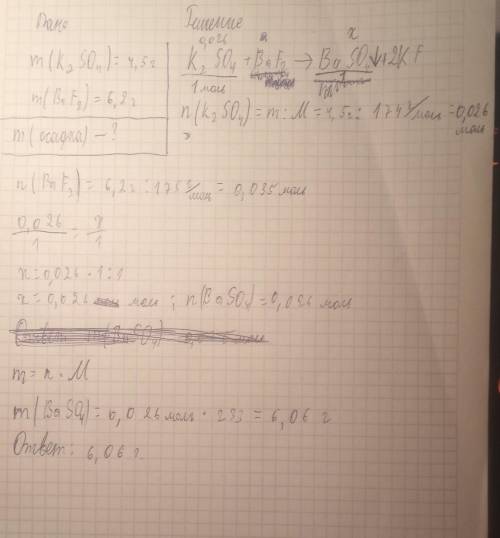 Дано
m(K₂SO₄)=4,5г
m(BaF₂)=6,2г
m(осадка) – ?
Решение
0,026 x
K₂SO₄ + BaF₂ → BaSO₄↓+2KF
1 моль 1
n(K₂SO₄) = m : M = 4,5г : 174 г/моль = 0,026 моль
n(BaF₂) = 6,2г : 175 г/моль = 0,035 моль
0,026/1 = x/1
x = 0,026 · 1 : 1
x = 0,026 моль ; n(BaSO₄) = 0,026 моль
m = n · M
m(BaSO₄) = 0,026 моль · 233 = 6,06 г
Ответ: 6,06 г